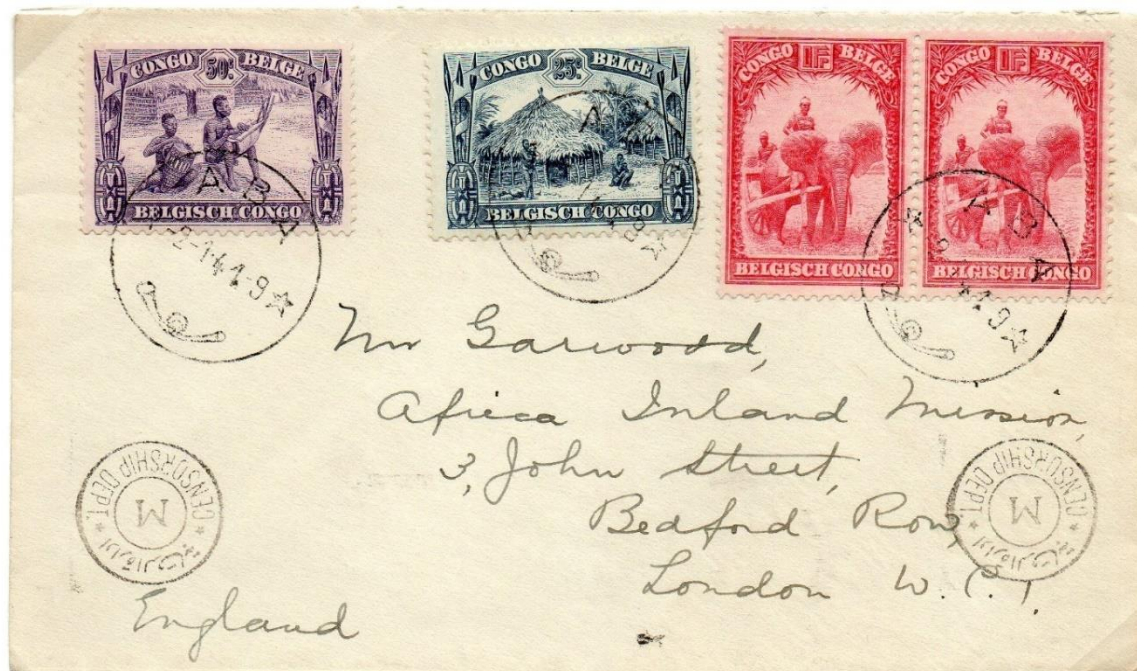 CONGO 50c. BELGE
BELGISCH CONGO
CONGO 25c. BELGE
BELGISCH CONGO
CONGO 1F BELGE
BELGISCH CONGO
CONGO 1F BELGE
BELGISCH CONGO
ABA
ABA
Mr Garwood,
Africa Inland Mission,
3, John Street,
Bedford Row,
London W.C.1.
England
CENSORSHIP DEPT.
M
CENSORSHIP DEPT.
M